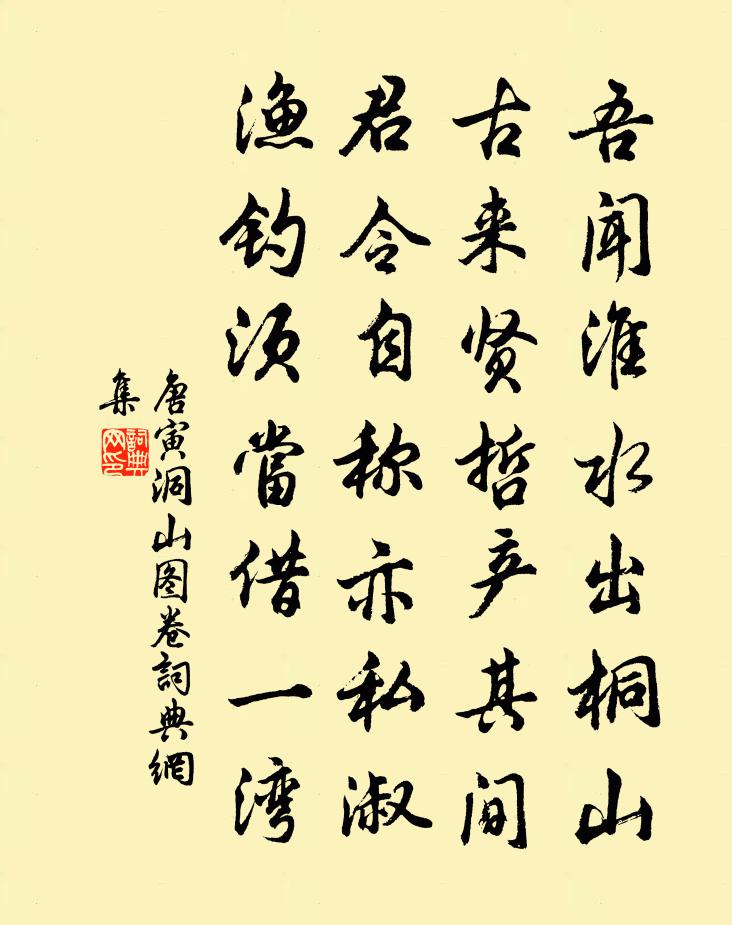 吾闻淮水出桐山
古来贤哲产其间
君令自称亦私淑
渔钓须當借一湾
唐寅洞山图卷詞典網
集
詞典网印